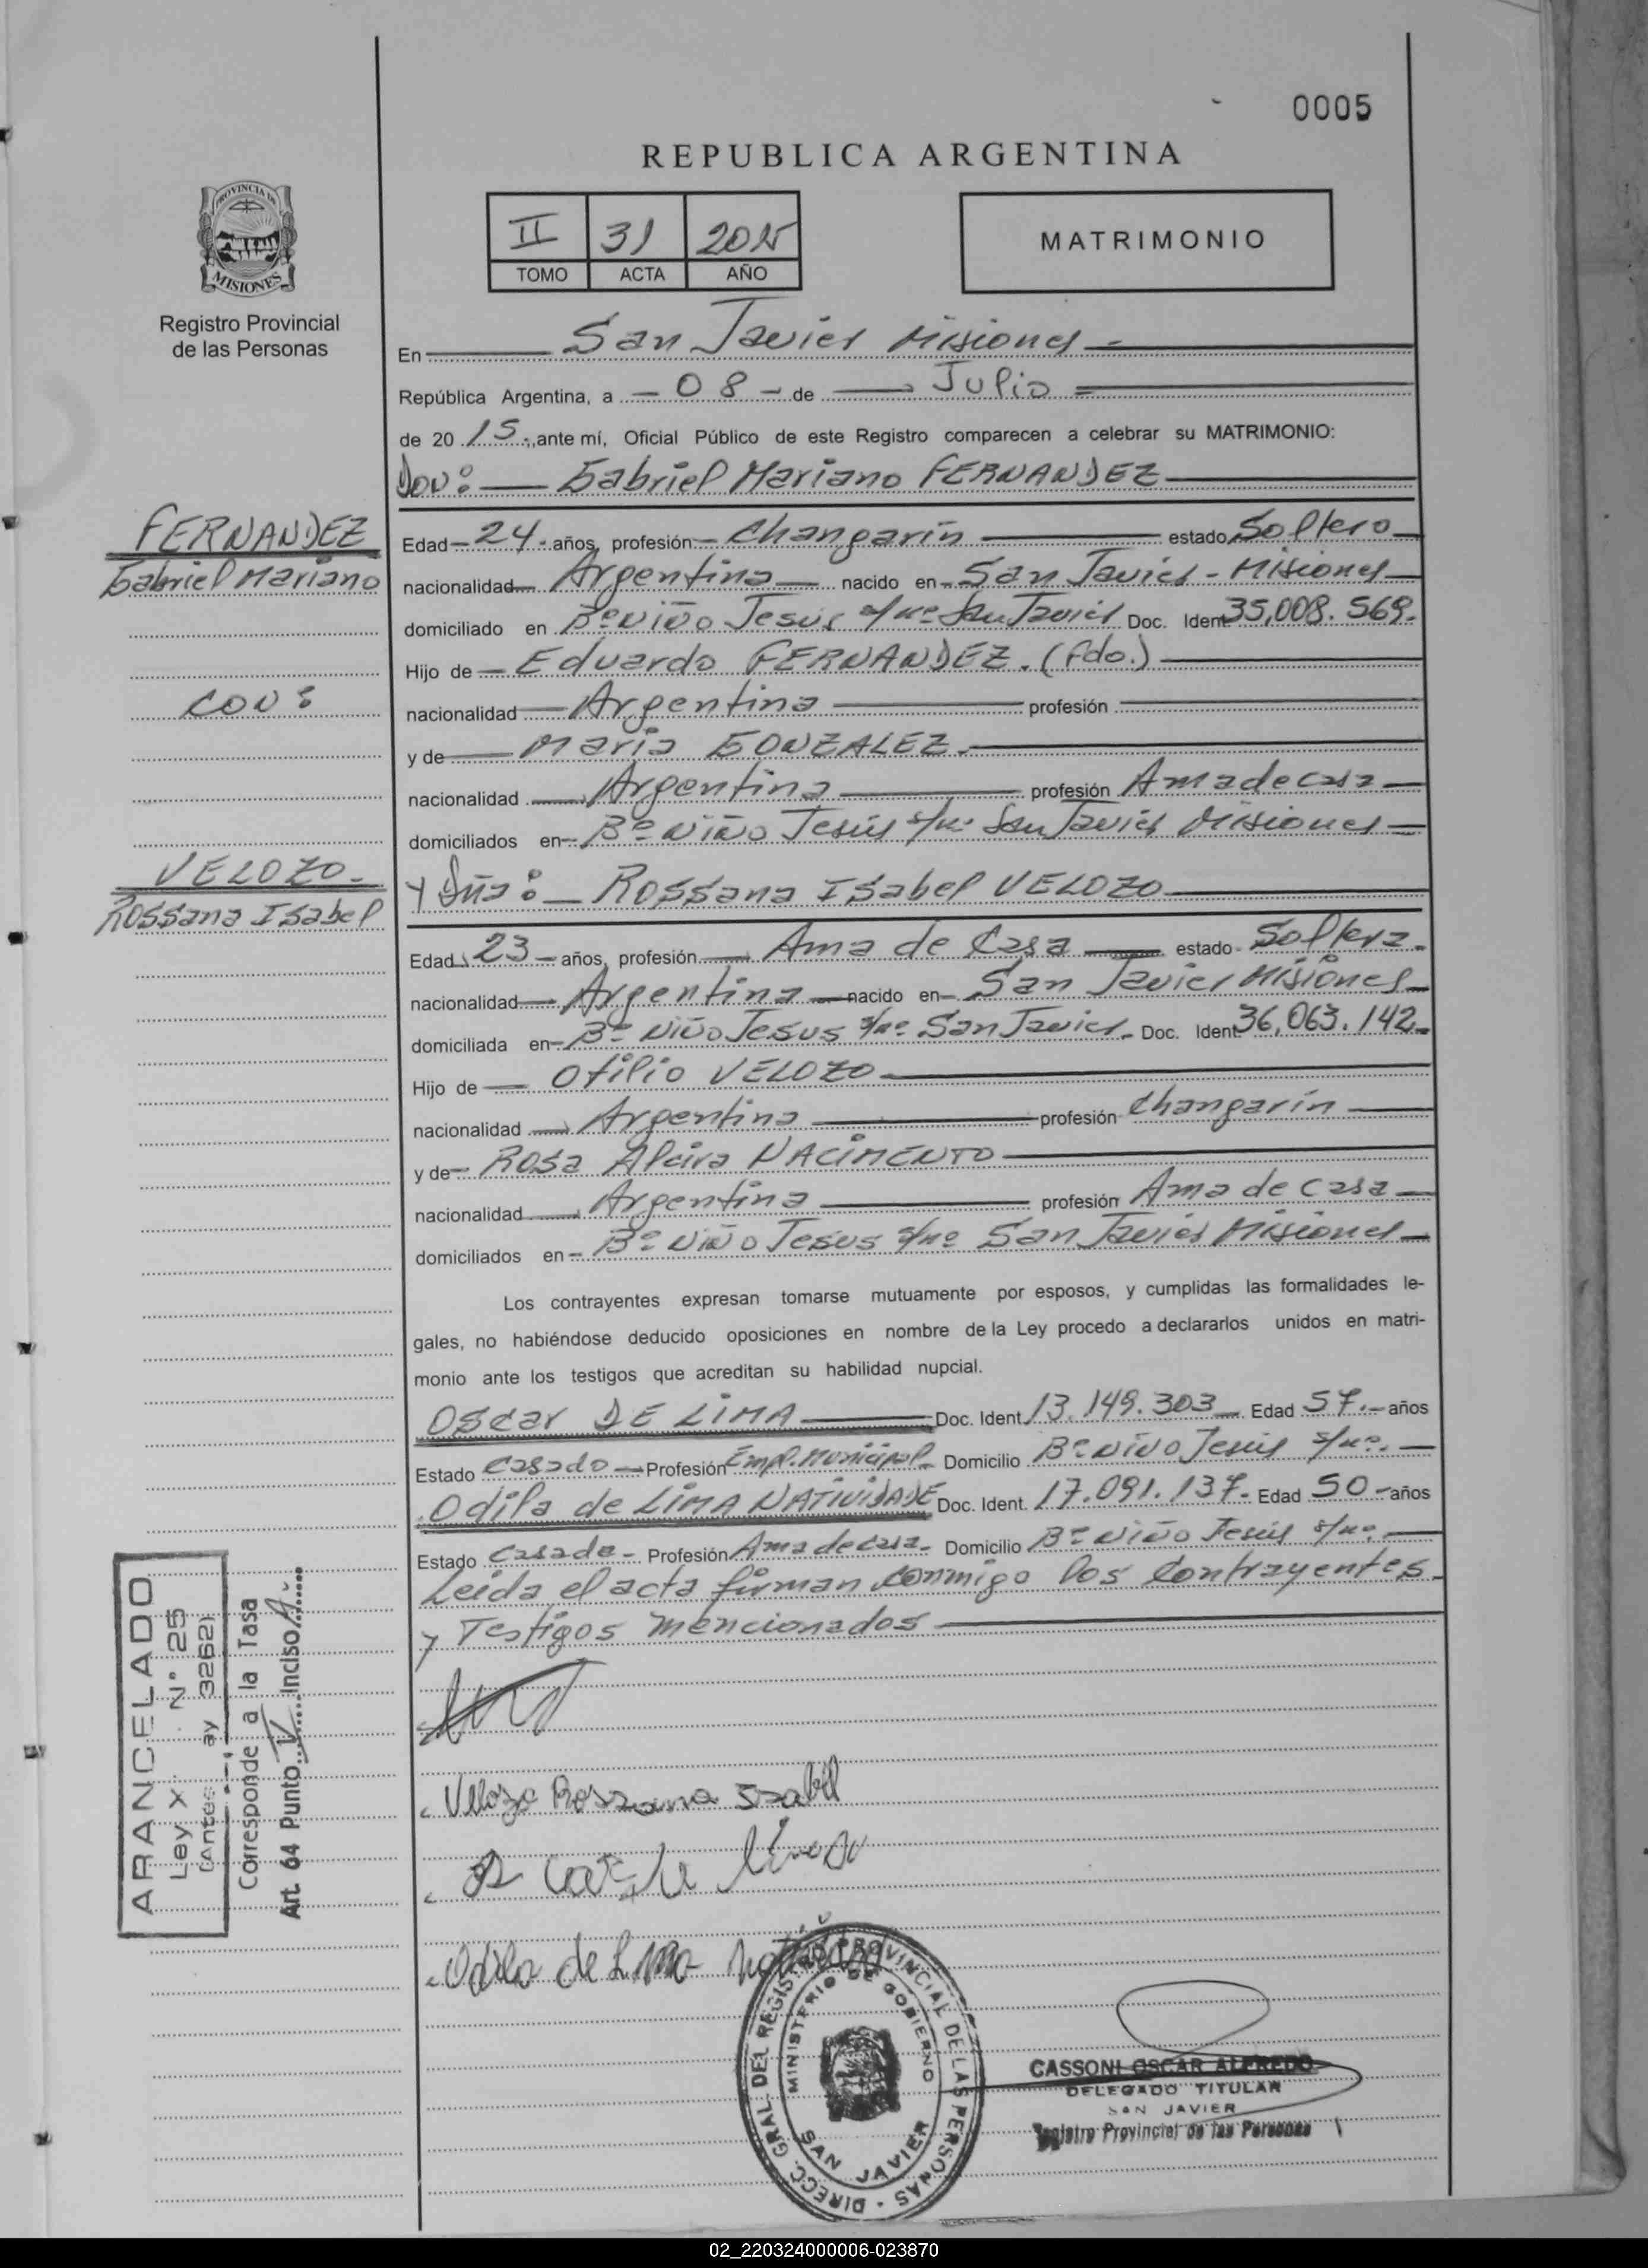 0005
REPUBLICA ARGENTINA
PROVINCIA DE
MISIONES
Registro Provincial
de las Personas
II 31 2015
TOMO ACTA AÑO
MATRIMONIO
En San Javier Misiones
República Argentina, a - 08 - de Julio
de 20 15., ante mí, Oficial Público de este Registro comparecen a celebrar su MATRIMONIO:
Don: Gabriel Mariano FERNANDEZ
FERNANDEZ
Gabriel Mariano
con:
VELOZO
Rossana Isabel
Edad 24 años, profesión Changarín estado Soltero
nacionalidad Argentina nacido en San Javier - Misiones
domiciliado en Bº Niño Jesús s/nº San Javier Doc. Ident 35,008.569.
Hijo de Eduardo FERNANDEZ. (fdo.)
nacionalidad Argentina profesión
y de Maria GONZALEZ.
nacionalidad Argentina profesión Ama de casa
domiciliados en Bº Niño Jesús s/nº San Javier Misiones
y Sña: Rossana Isabel VELOZO
Edad 23 años, profesión Ama de Casa estado Soltera
nacionalidad Argentina nacido en San Javier Misiones
domiciliada en Bº Niño Jesus s/nº San Javier Doc. Ident 36,063.142
Hijo de Otilio VELOZO
nacionalidad Argentina profesión Changarín
y de Rosa Alcira NACIMENTO
nacionalidad Argentina profesión Ama de casa
domiciliados en Bº Niño Jesus s/nº San Javier Misiones
Los contrayentes expresan tomarse mutuamente por esposos, y cumplidas las formalidades le-
gales, no habiéndose deducido oposiciones en nombre de la Ley procedo a declararlos unidos en matri-
monio ante los testigos que acreditan su habilidad nupcial.
Oscar DE LIMA Doc. Ident. 13.149.303 Edad 57.- años
Estado Casado Profesión Empl. Municipal Domicilio Bº Niño Jesús s/nº.
Odila de LIMA NATIVIDADE Doc. Ident. 17.091.137. Edad 50 años
Estado Casada Profesión Ama de casa Domicilio Bº Niño Jesús s/nº.
Leída el acta firman conmigo los Contrayentes
y Testigos mencionados
Velozo Rossana Isabel
Odila de Lima
ARANCELADO
Ley X N° 25
(Antes ay 3262)
Corresponde a la Tasa
Art. 64 Punto IV Inciso A
DIRECC. GRAL. DEL REGISTRO PROVINCIAL DE LAS PERSONAS
MINISTERIO DE GOBIERNO
SAN JAVIER
CASSONI OSCAR ALFREDO
DELEGADO TITULAR
SAN JAVIER
Registro Provincial de las Personas
02_220324000006-023870